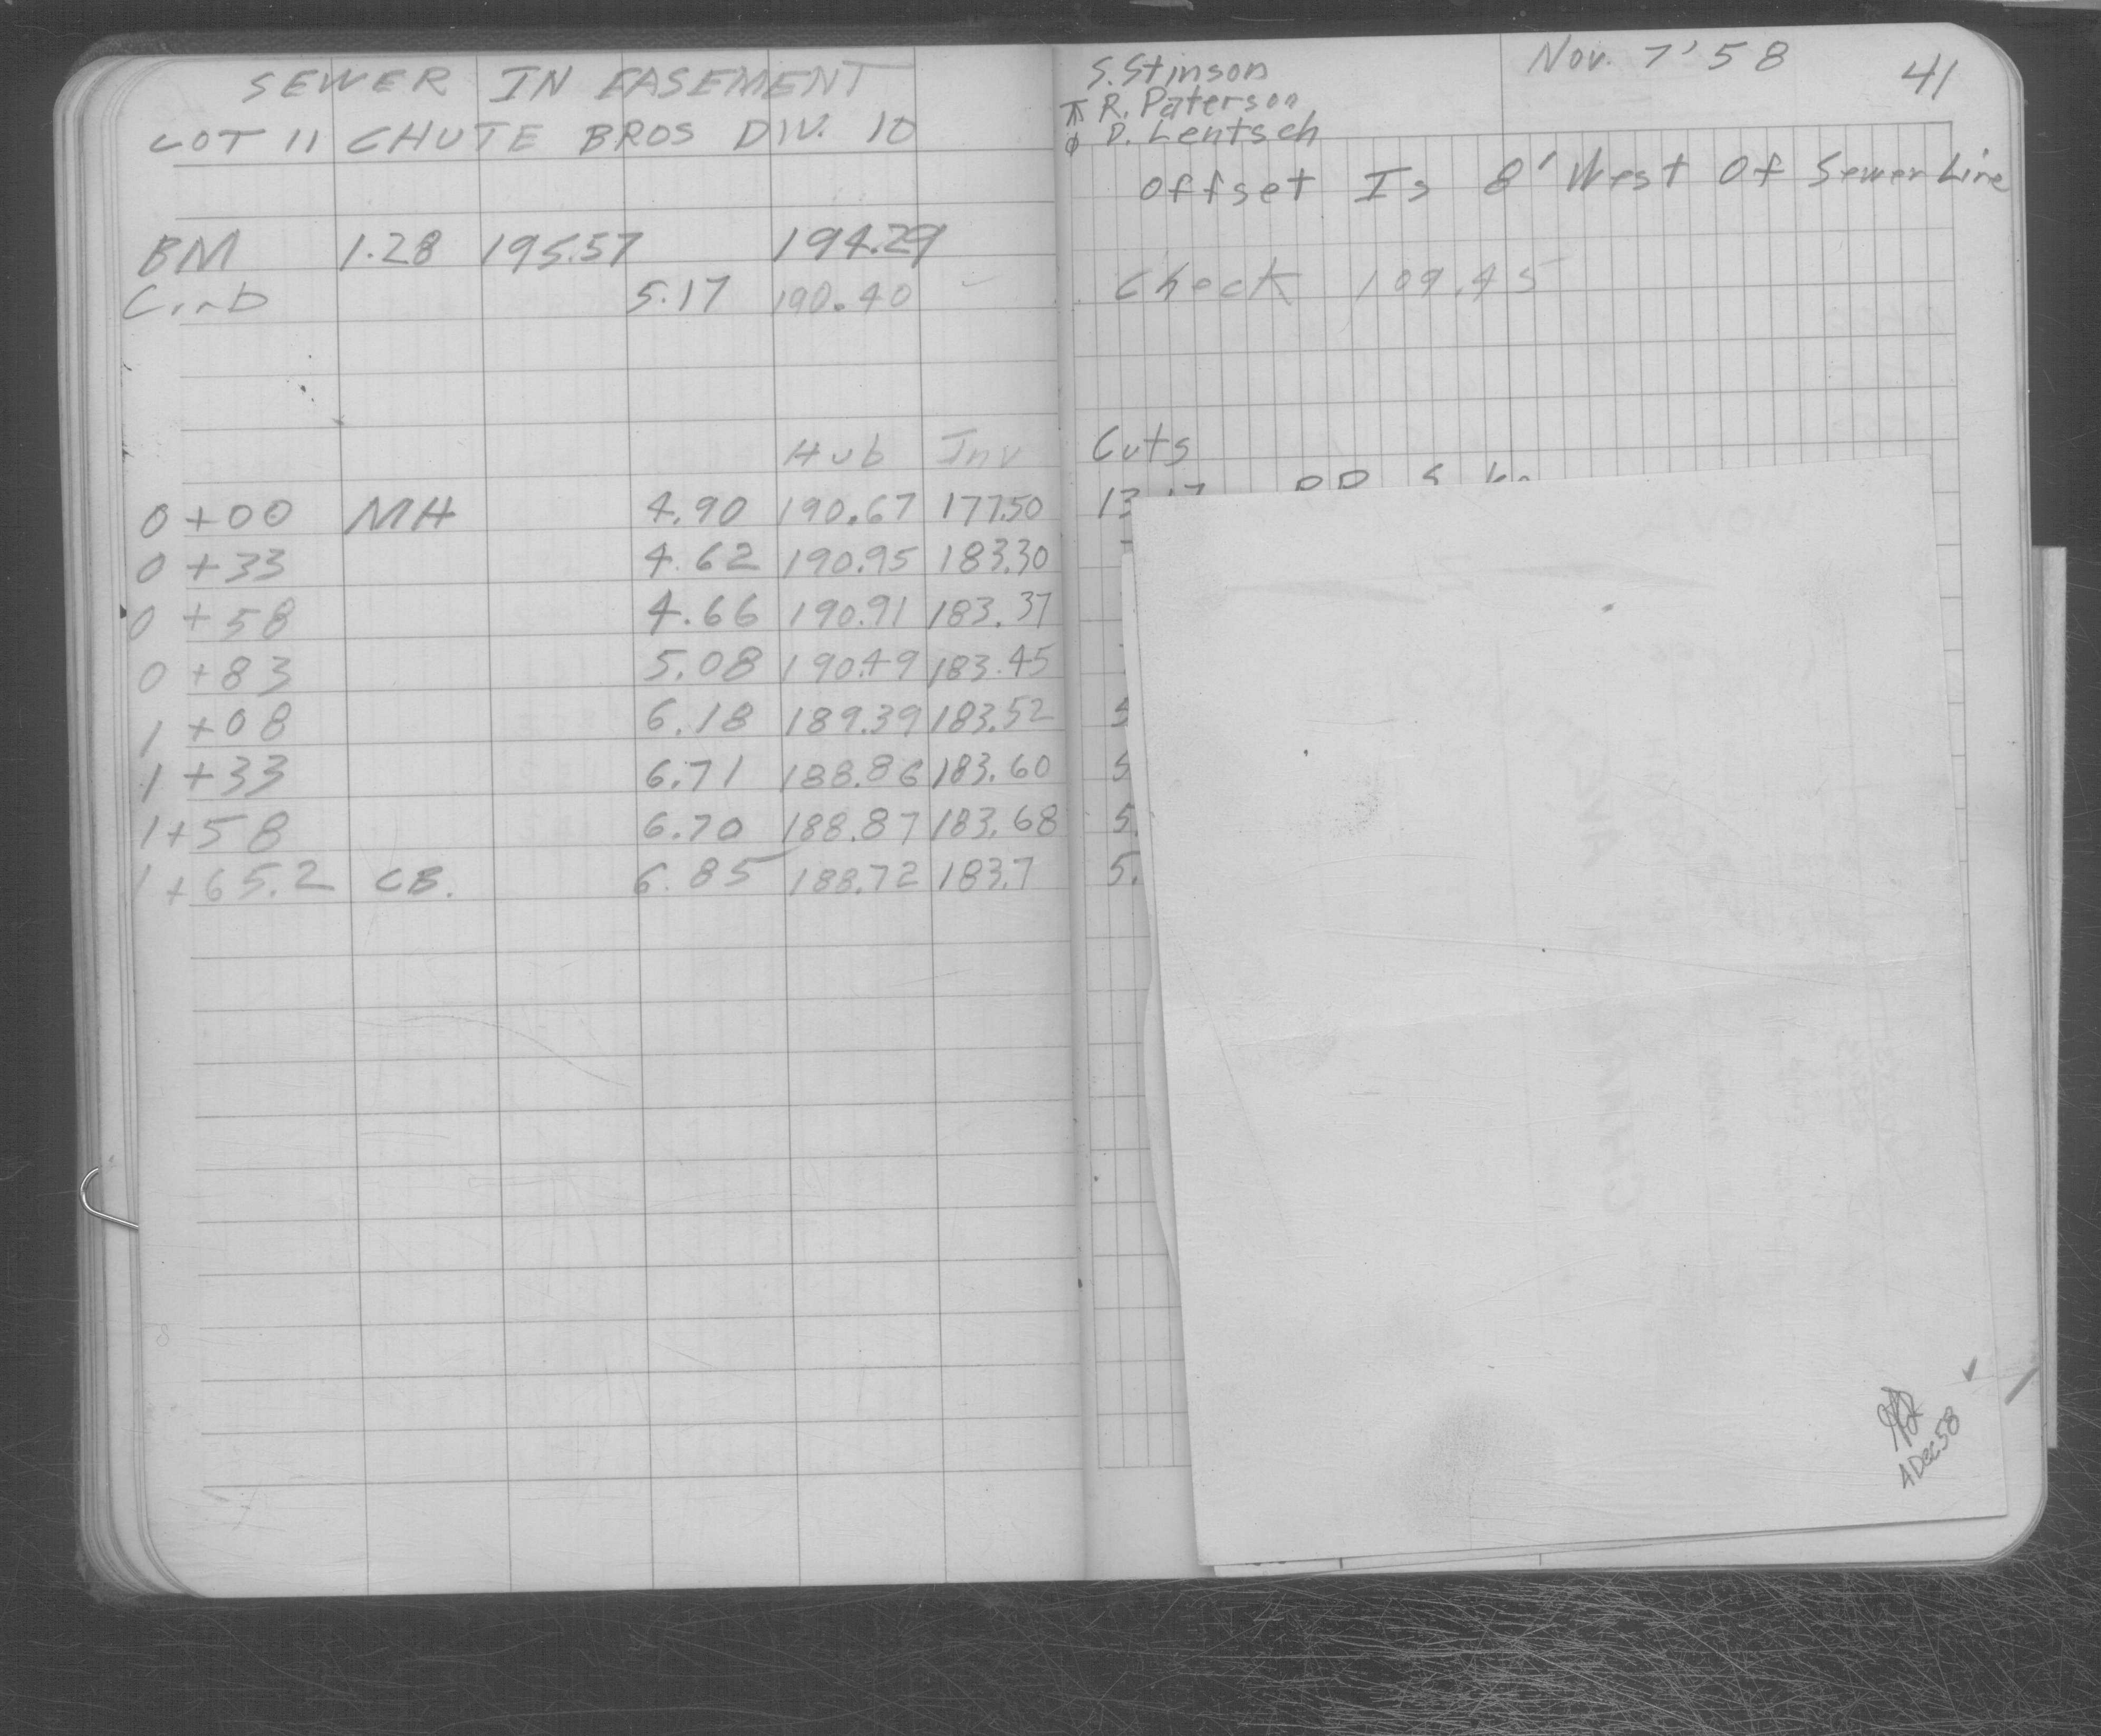 SEWER IN EASEMENT
LOT 11 CHUTE BROS DIV. 10
BM 1.28 195.57 194.29
Curb 5.17 190.40
Hub Inv
0+00 MH 4.90 190.67 177.50
0+33 4.62 190.95 183.30
0+58 4.66 190.91 183.37
0+83 5.08 190.49 183.45
1+08 6.18 189.39 183.52
1+33 6.71 188.86 183.60
1+58 6.70 188.87 183.68
1+65.2 CB. 6.85 188.72 183.7
S. Stinson Nov. 7 '58 41
⊼ R. Paterson
φ D. Lentsch
Offset Is 8' West Of Sewer Line
Check 109.45
Cuts
13.17
5
5
5.
5.
Dec 58